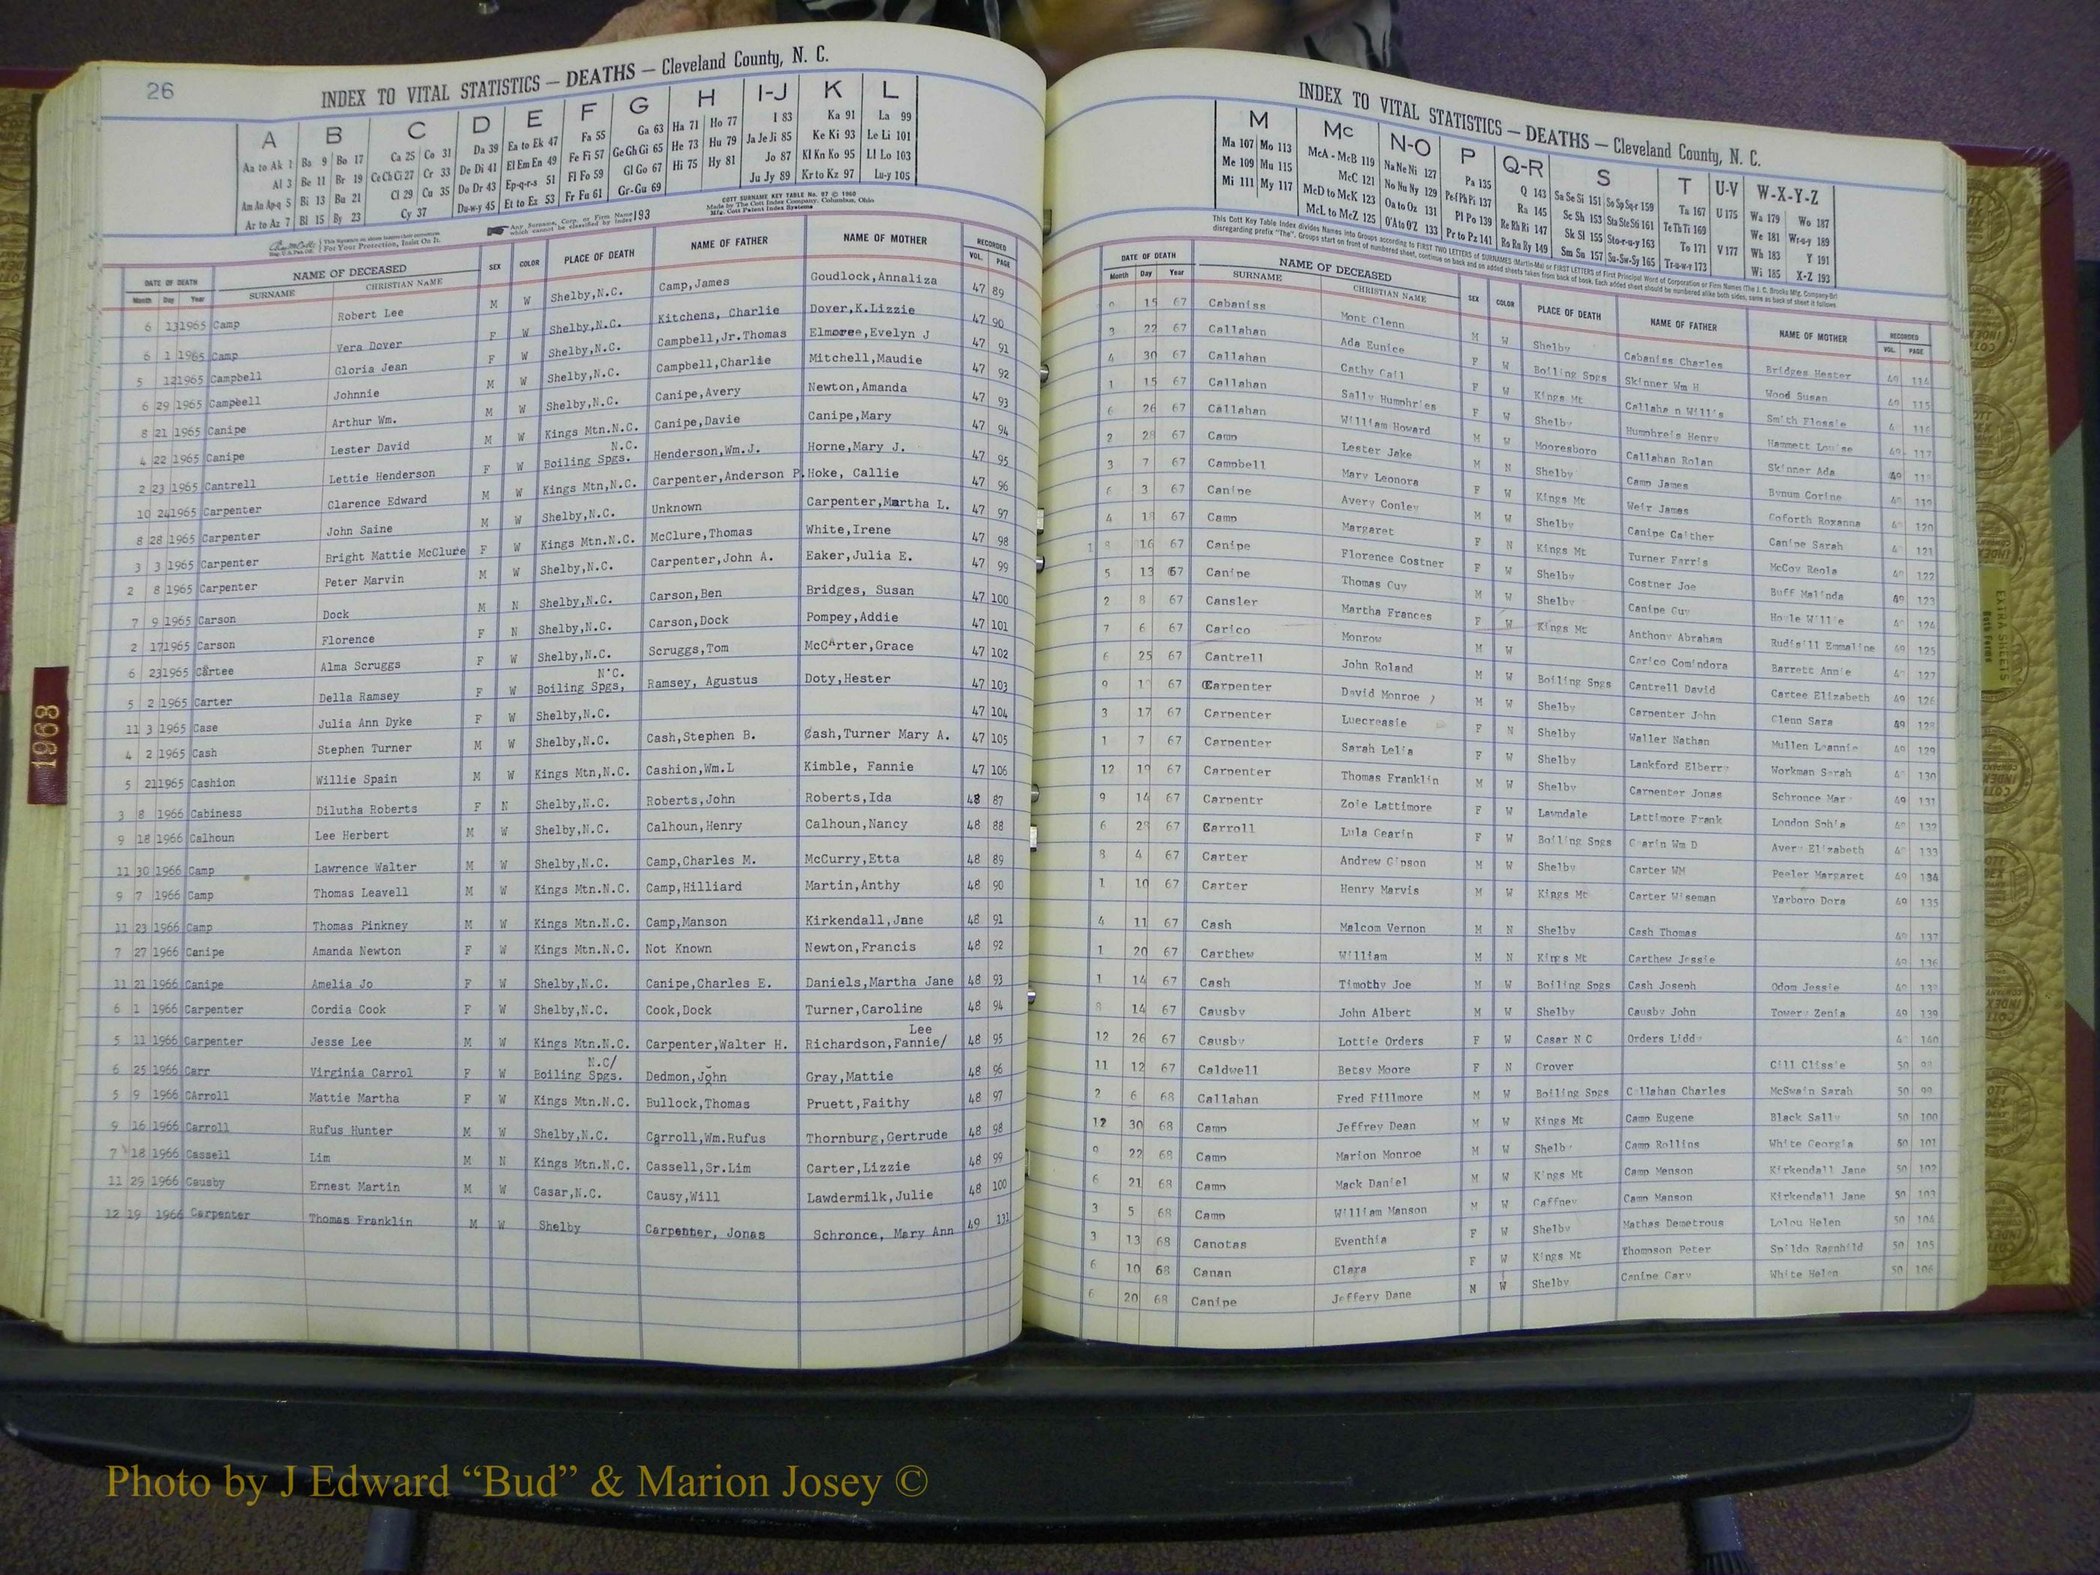 26
INDEX TO VITAL STATISTICS — DEATHS — Cleveland County, N. C.
A B C D E F G H I-J K L
Aa to Ak 1 Ba 9 Bo 17 Ca 25 Co 31 Da 39 Ea to Ek 47 Fa 55 Ga 63 Ha 71 Ho 77 I 83 Ka 91 La 99
Al 3 Be 11 Br 19 Ce Ch Ci 27 Cr 33 De Di 41 El Em En 49 Fe Fi 57 Ge Gh Gi 65 He 73 Hu 79 Ja Je Ji 85 Ke Ki 93 Le Li 101
Am An Ap-q 5 Bi 13 Bu 21 Cl 29 Cu 35 Do Dr 43 Ep-q-r-s 51 Fl Fo 59 Gl Go 67 Hi 75 Hy 81 Jo 87 Kl Kn Ko 95 Ll Lo 103
Ar to Az 7 Bl 15 By 23 Cy 37 Du-w-y 45 Et to Ez 53 Fr Fu 61 Gr-Gu 69 Ju Jy 89 Kr to Kz 97 Lu-y 105
For Your Protection, Insist On It.
Any Surname, Corp. or Firm Name which cannot be classified by Index 193
COTT SURNAME KEY TABLE No. 97 © 1960
Made by The Cott Index Company, Columbus, Ohio
Mfg. Cott Patent Index Systems
DATE OF DEATH NAME OF DECEASED SEX COLOR PLACE OF DEATH NAME OF FATHER NAME OF MOTHER RECORDED
Month Day Year SURNAME CHRISTIAN NAME VOL. PAGE
6 13 1965 Camp Robert Lee M W Shelby,N.C. Camp,James Goudlock,Annaliza 47 89
6 1 1965 Camp Vera Dover F W Shelby,N.C. Kitchens, Charlie Dover,K.Lizzie 47 90
5 12 1965 Campbell Gloria Jean F W Shelby,N.C. Campbell,Jr.Thomas Elmoree,Evelyn J 47 91
6 29 1965 Campbell Johnnie M W Shelby,N.C. Campbell,Charlie Mitchell,Maudie 47 92
8 21 1965 Canipe Arthur Wm. M W Shelby,N.C. Canipe,Avery Newton,Amanda 47 93
4 22 1965 Canipe Lester David M W Kings Mtn.N.C. Canipe,Davie Canipe,Mary 47 94
2 23 1965 Cantrell Lettie Henderson F W Boiling Spgs. N.C. Henderson,Wm.J. Horne,Mary J. 47 95
10 24 1965 Carpenter Clarence Edward M W Kings Mtn,N.C. Carpenter,Anderson P. Hoke, Callie 47 96
8 28 1965 Carpenter John Saine M W Shelby,N.C. Unknown Carpenter,Martha L. 47 97
3 3 1965 Carpenter Bright Mattie McClure F W Kings Mtn.N.C. McClure,Thomas White,Irene 47 98
2 8 1965 Carpenter Peter Marvin M W Shelby,N.C. Carpenter,John A. Eaker,Julia E. 47 99
7 9 1965 Carson Dock M N Shelby,N.C. Carson,Ben Bridges, Susan 47 100
2 17 1965 Carson Florence F N Shelby,N.C. Carson,Dock Pompey,Addie 47 101
6 23 1965 Cartee Alma Scruggs F W Shelby,N.C. Scruggs,Tom McCArter,Grace 47 102
5 2 1965 Carter Della Ramsey F W Boiling Spgs, N.C. Ramsey, Agustus Doty,Hester 47 103
11 3 1965 Case Julia Ann Dyke F W Shelby,N.C. 47 104
4 2 1965 Cash Stephen Turner M W Shelby,N.C. Cash,Stephen B. Cash,Turner Mary A. 47 105
5 21 1965 Cashion Willie Spain M W Kings Mtn,N.C. Cashion,Wm.L Kimble, Fannie 47 106
3 8 1966 Cabiness Dilutha Roberts F N Shelby,N.C. Roberts,John Roberts,Ida 48 87
9 18 1966 Calhoun Lee Herbert M W Shelby,N.C. Calhoun,Henry Calhoun,Nancy 48 88
11 30 1966 Camp Lawrence Walter M W Shelby,N.C. Camp,Charles M. McCurry,Etta 48 89
9 7 1966 Camp Thomas Leavell M W Kings Mtn.N.C. Camp,Hilliard Martin,Anthy 48 90
11 23 1966 Camp Thomas Pinkney M W Kings Mtn.N.C. Camp,Manson Kirkendall,Jane 48 91
7 27 1966 Canipe Amanda Newton F W Kings Mtn.N.C. Not Known Newton,Francis 48 92
11 21 1966 Canipe Amelia Jo F W Shelby,N.C. Canipe,Charles E. Daniels,Martha Jane 48 93
6 1 1966 Carpenter Cordia Cook F W Shelby,N.C. Cook,Dock Turner,Caroline 48 94
5 11 1966 Carpenter Jesse Lee M W Kings Mtn.N.C. Carpenter,Walter H. Richardson,Fannie/ Lee 48 95
6 25 1966 Carr Virginia Carrol F W Boiling Spgs. N.C/ Dedmon,John Gray,Mattie 48 96
5 9 1966 CArroll Mattie Martha F W Kings Mtn.N.C. Bullock,Thomas Pruett,Faithy 48 97
9 16 1966 Carroll Rufus Hunter M W Shelby,N.C. Carroll,Wm.Rufus Thornburg,Gertrude 48 98
7 18 1966 Cassell Lim M N Kings Mtn.N.C. Cassell,Sr.Lim Carter,Lizzie 48 99
11 29 1966 Causby Ernest Martin M W Casar,N.C. Causy,Will Lawdermilk,Julie 48 100
12 19 1966 Carpenter Thomas Franklin M W Shelby Carpenter, Jonas Schronce, Mary Ann 49 131
INDEX TO VITAL STATISTICS — DEATHS — Cleveland County, N. C.
M Mc N-O P Q-R S T U-V W-X-Y-Z
Ma 107 Mo 113 McA - McB 119 Na Ne Ni 127 Pa 135 Q 143 Sa Se Si 151 So Sp Sq-r 159 Ta 167 U 175 Wa 179 Wo 187
Me 109 Mu 115 McC 121 No Nu Ny 129 Pe-f Ph Pi 137 Ra 145 Sc Sh 153 Sta Ste Sti 161 Te Th Ti 169 We 181 Wr-u-y 189
Mi 111 My 117 McD to McK 123 Oa to Oz 131 Pl Po 139 Re Rh Ri 147 Sk Sl 155 Sto-r-u-y 163 To 171 V 177 Wh 183 Y 191
McL to McZ 125 O'A to O'Z 133 Pr to Pz 141 Ro Ru Ry 149 Sm Sn 157 Su-Sw-Sy 165 Tr-u-w-y 173 Wi 185 X-Z 193
This Cott Key Table Index divides Names into Groups according to FIRST TWO LETTERS of SURNAMES (Martin-Ma) or FIRST LETTERS of First Principal Word of Corporation or Firm Names (The J. C. Brooks Mfg. Company-Br)
disregarding prefix "The". Groups start on front of numbered sheet, continue on back and on added sheets taken from back of book. Each added sheet should be numbered alike both sides, same as back of sheet it follows
DATE OF DEATH NAME OF DECEASED SEX COLOR PLACE OF DEATH NAME OF FATHER NAME OF MOTHER RECORDED
Month Day Year SURNAME CHRISTIAN NAME VOL. PAGE
9 15 67 Cabaniss Mont Glenn M W Shelby Cabaniss Charles Bridges Hester 49 114
3 22 67 Callahan Ada Eunice F W Boiling Spgs Skinner Wm H Wood Susan 49 115
4 30 67 Callahan Cathy Gail F W Kings Mt Callaha n Willis Smith Flossie 4 116
1 15 67 Callahan Sally Humphries F W Shelby Humphreis Henry Hammett Louise 49 117
6 26 67 Callahan William Howard M W Mooresboro Callahan Rolan Skinner Ada 49
2 28 67 Camp Lester Jake M N Shelby Camp James Bynum Corine 49 119
3 7 67 Campbell Mary Leonora F W Kings Mt Weir James Goforth Roxanna 120
6 3 67 Canipe Avery Conley M W Shelby Canipe Gaither Canipe Sarah 121
4 18 67 Camp Margaret F N Kings Mt Turner Farris McCoy Reola 49 122
8 16 67 Canipe Florence Costner F W Shelby Costner Joe Buff Malinda 49 123
5 13 67 Canipe Thomas Guy M W Shelby Canipe Guy Hoyle Willie 124
2 8 67 Cansler Martha Frances F W Kings Mt Anthony Abraham Rudisill Emmaline 49 125
7 6 67 Carico Monrow M W Carico Comindora Barrett Annie 127
6 25 67 Cantrell John Roland M W Boiling Spgs Cantrell David Cartee Elizabeth 49 126
9 67 Carpenter David Monroe M W Shelby Carpenter John Glenn Sara 49 128
3 17 67 Carpenter Luecreasie F N Shelby Waller Nathan Mullen Leannie 49 129
1 7 67 Carpenter Sarah Lelia F W Shelby Lankford Elberry Workman Sarah 130
12 19 67 Carpenter Thomas Franklin M W Shelby Carpenter Jonas Schronce Mary 49 131
9 14 67 Carpentr Zoie Lattimore F W Lawndale Lattimore Frank London Sphia 49 132
6 28 67 Carroll Lula Gearin F W Boiling Spgs Gearin Wm D Avery Elizabeth 133
8 4 67 Carter Andrew Gipson M W Shelby Carter WM Peeler Margaret 49 134
1 10 67 Carter Henry Marvis M W Kings Mt Carter Wiseman Yarboro Dora 49 135
4 11 67 Cash Malcom Vernon M N Shelby Cash Thomas 49 137
1 20 67 Carthew William M N Kings Mt Carthew Jessie 49 136
1 14 67 Cash Timothy Joe M W Boiling Spgs Cash Joseph Odom Jessie 49 138
8 14 67 Causby John Albert M W Shelby Causby John Towery Zenia 49 139
12 26 67 Causby Lottie Orders F W Casar N C Orders Liddy 140
11 12 67 Caldwell Betsy Moore F N Grover Gill Clissie 50 98
2 6 68 Callahan Fred Fillmore M W Boiling Spgs Callahan Charles McSwain Sarah 50 99
12 30 68 Camp Jeffrey Dean M W Kings Mt Camp Eugene Black Sally 50 100
9 22 68 Camp Marion Monroe M W Shelby Camp Rollins White Georgia 50 101
6 21 68 Camp Mack Daniel M W Kings Mt Camp Menson Kirkendall Jane 50 102
3 5 68 Camp William Manson M W Gaffney Camp Manson Kirkendall Jane 50 103
3 13 68 Canotas Eventhia F W Shelby Mathas Demetrous Lolou Helen 50 104
6 10 68 Canan Clara F W Kings Mt Thompson Peter Spildo Ragnhild 50 105
6 20 68 Canipe Jeffery Dane M W Shelby Canipe Gary White Helen 50 106
1968
EXTRA SHEETS
Photo by J Edward “Bud” & Marion Josey ©